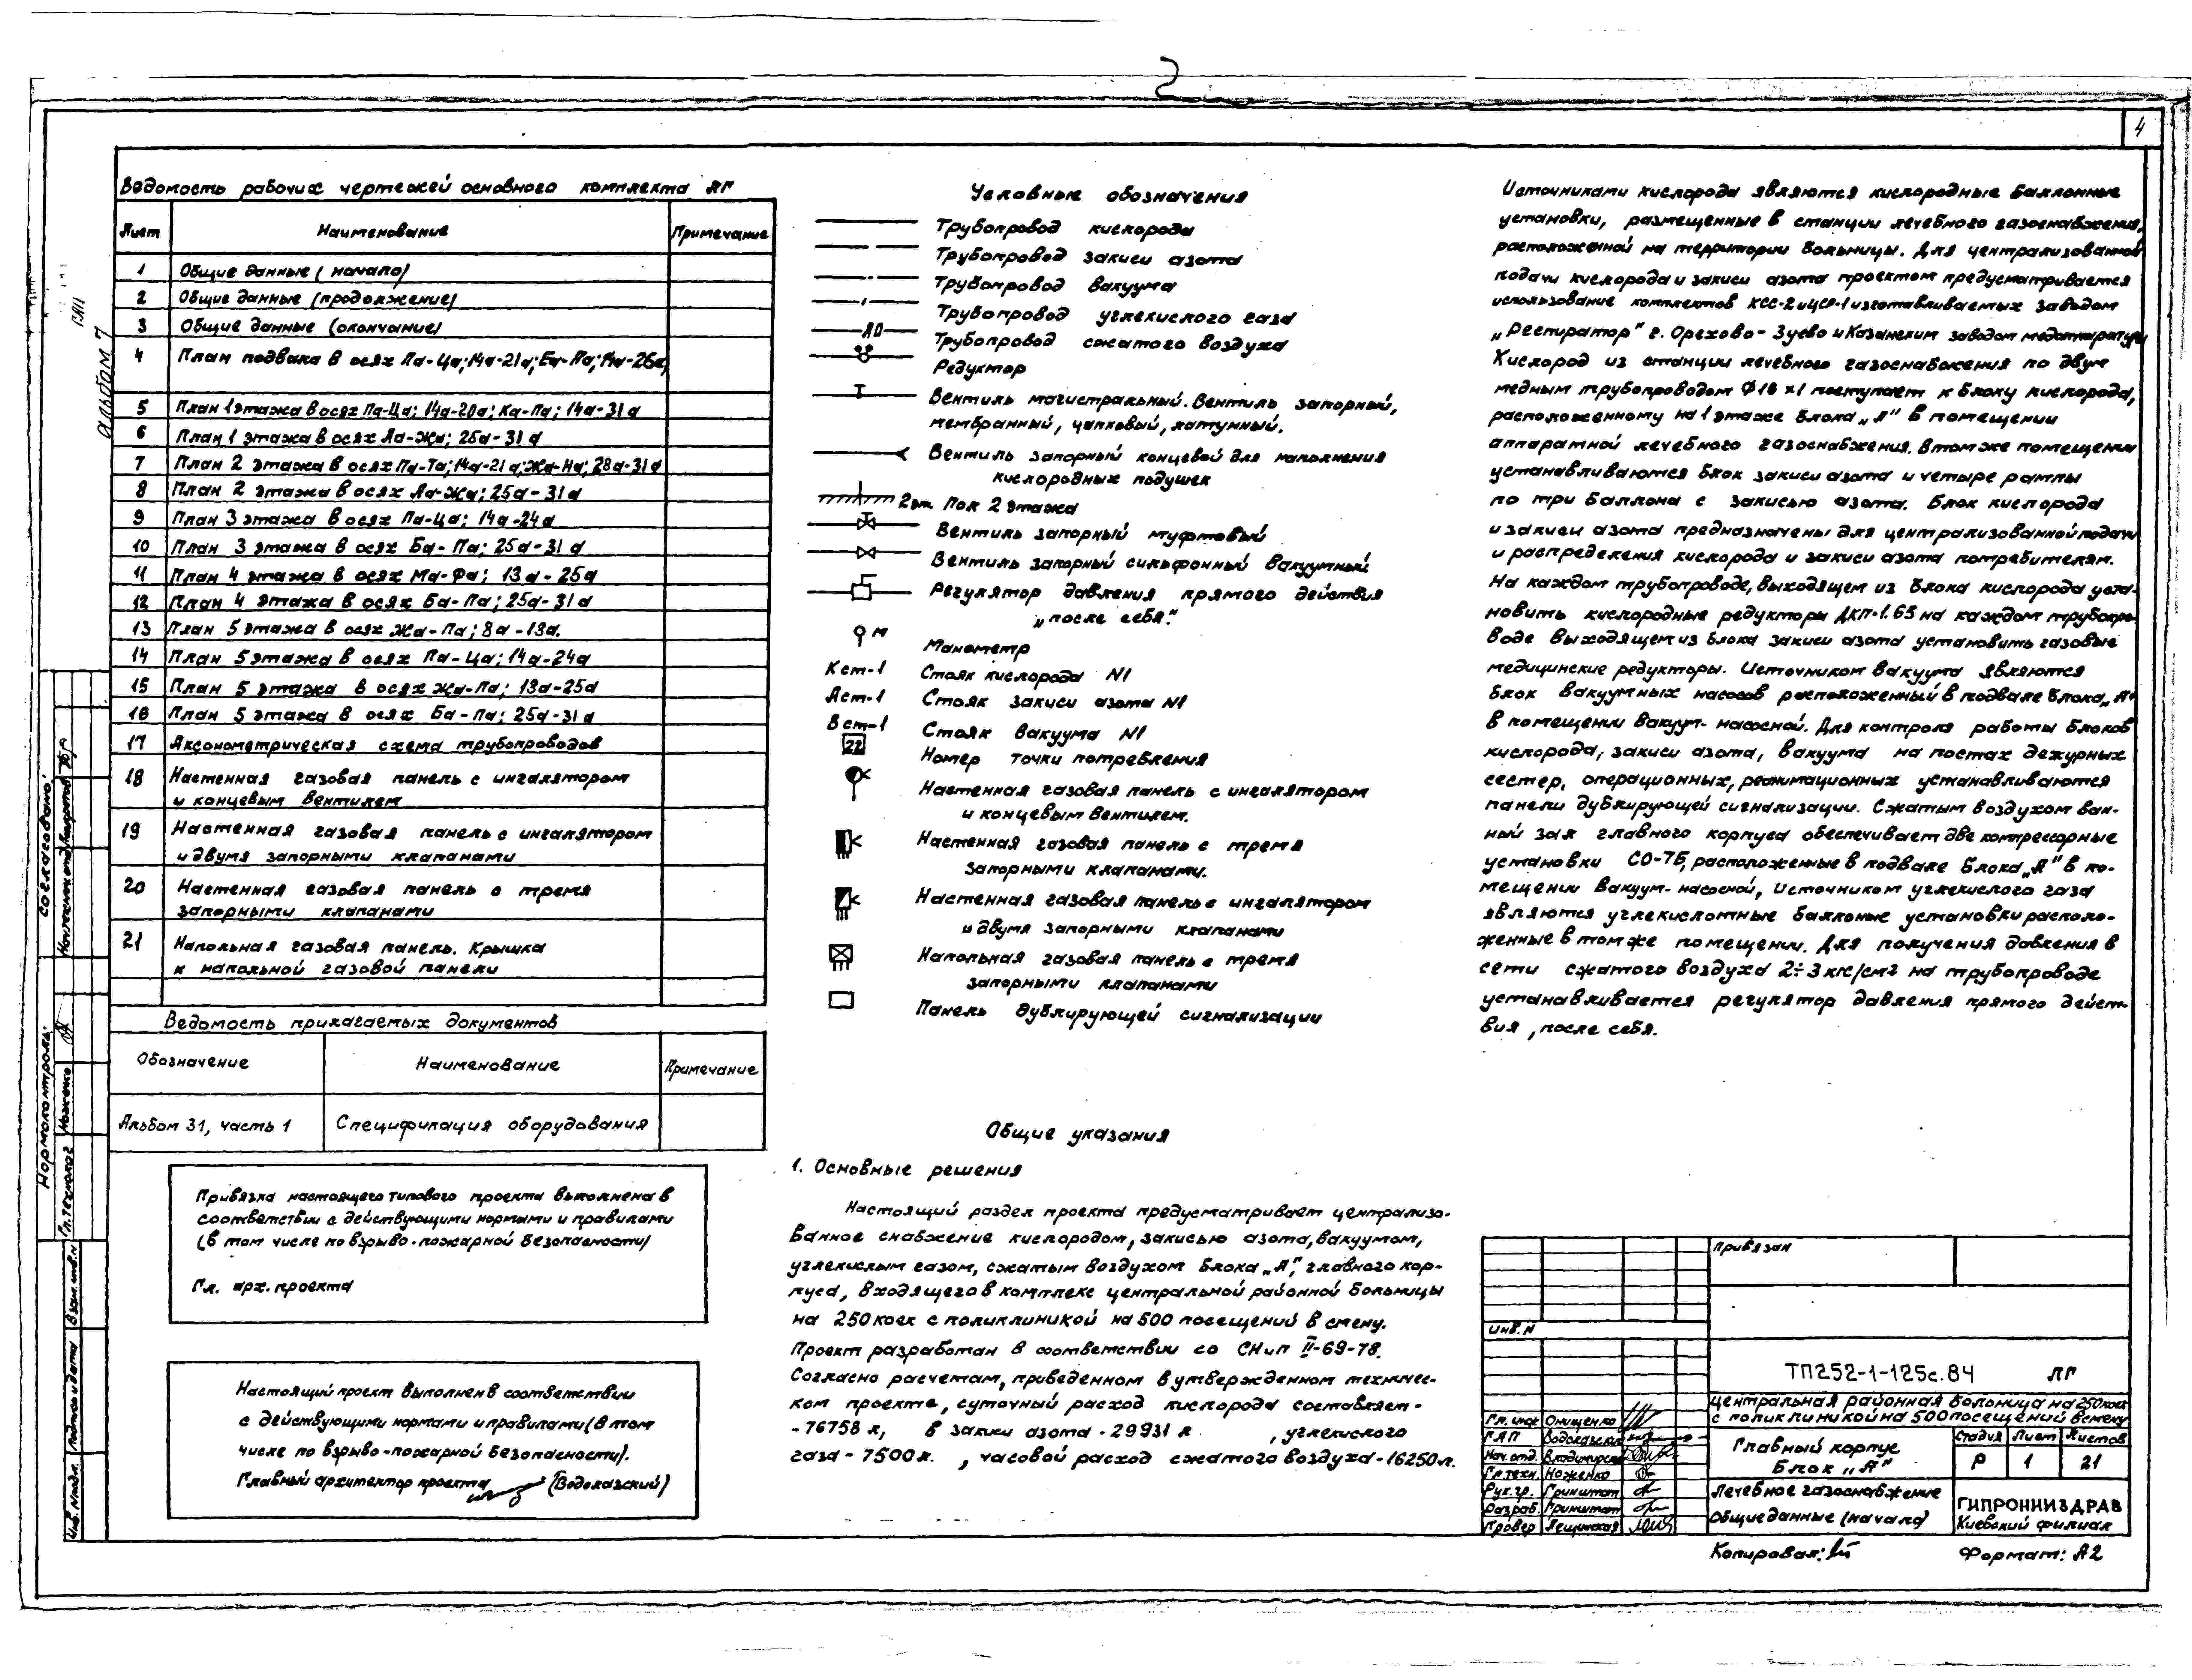 4
Альбом 7
Ведомость рабочих чертежей основного комплекта ЛГ
Лист Наименование Примечание
1 Общие данные (начало)
2 Общие данные (продолжение)
3 Общие данные (окончание)
4 План подвала в осях Па-Ца; 14а-21а; Еа-Па; 14а-26а;
5 План 1 этажа в осях Па-Ца; 14а-20а; Ка-Па; 14а-31а
6 План 1 этажа в осях Аа-Жа; 25а-31а
7 План 2 этажа в осях Па-Та; 14а-21а; Жа-На; 28а-31а
8 План 2 этажа в осях Аа-Жа; 25а-31а
9 План 3 этажа в осях Па-Ца; 14а-24а
10 План 3 этажа в осях Ба-Па; 25а-31а
11 План 4 этажа в осях Ма-Фа; 13а-25а
12 План 4 этажа в осях Ба-Па; 25а-31а
13 План 5 этажа в осях Жа-Па; 8а-13а.
14 План 5 этажа в осях Па-Ца; 14а-24а
15 План 5 этажа в осях Жа-Па; 13а-25а
16 План 5 этажа в осях Ба-Па; 25а-31а
17 Аксонометрическая схема трубопроводов
18 Настенная газовая панель с ингалятором
и концевым вентилем
19 Настенная газовая панель с ингалятором
и двумя запорными клапанами
20 Настенная газовая панель с тремя
запорными клапанами
21 Напольная газовая панель. Крышка
к напольной газовой панели
Ведомость прилагаемых документов
Обозначение Наименование Примечание
Альбом 31, часть 1 Спецификация оборудования
Привязка настоящего типового проекта выполнена в
соответствии с действующими нормами и правилами
(в том числе по взрыво-пожарной безопасности)
Гл. арх. проекта
Настоящий проект выполнен в соответствии
с действующими нормами и правилами (в том
числе по взрыво-пожарной безопасности).
Главный архитектор проекта (Водолазский)
Условные обозначения
Трубопровод кислорода
Трубопровод закиси азота
Трубопровод вакуума
Трубопровод углекислого газа
ЛО Трубопровод сжатого воздуха
Редуктор
Вентиль магистральный. Вентиль запорный,
мембранный, цапковый, латунный.
Вентиль запорный концевой для наполнения
кислородных подушек
2эт. Пол 2 этажа
Вентиль запорный муфтовый
Вентиль запорный сильфонный вакуумный
Регулятор давления прямого действия
„после себя".
М Манометр
Кст-1 Стояк кислорода N1
Аст-1 Стояк закиси азота N1
Вст-1 Стояк вакуума N1
22 Номер точки потребления
Настенная газовая панель с ингалятором
и концевым вентилем.
Настенная газовая панель с тремя
запорными клапанами.
Настенная газовая панель с ингалятором
и двумя запорными клапанами
Напольная газовая панель с тремя
запорными клапанами
Панель дублирующей сигнализации
Общие указания
1. Основные решения
Настоящий раздел проекта предусматривает централизо-
ванное снабжение кислородом, закисью азота, вакуумом,
углекислым газом, сжатым воздухом блока „А", главного кор-
пуса, входящего в комплекс центральной районной больницы
на 250 коек с поликлиникой на 500 посещений в смену.
Проект разработан в соответствии со СНиП II-69-78.
Согласно расчетам, приведенном в утвержденном техничес-
ком проекте, суточный расход кислорода составляет-
-76758 л, в закиси азота -29931 л , углекислого
газа - 7500 л. , часовой расход сжатого воздуха-16250 л.
Источниками кислорода являются кислородные баллонные
установки, размещенные в станции лечебного газоснабжения,
расположенной на территории больницы. Для централизованной
подачи кислорода и закиси азота проектом предусматривается
использование комплектов КСС-2 и ЦСР-1 изготавливаемых заводом
„Респиратор" г. Орехово-Зуево и Казанским заводом медаппаратуры
Кислород из станции лечебного газоснабжения по двум
медным трубопроводом Ф18×1 поступает к блоку кислорода,
расположенному на 1 этаже блока „А" в помещении
аппаратной лечебного газоснабжения. В том же помещении
устанавливаются блок закиси азота и четыре рампы
по три баллона с закисью азота. Блок кислорода
и закиси азота предназначены для централизованной подачи
и распределения кислорода и закиси азота потребителям.
На каждом трубопроводе, выходящем из блока кислорода уста-
новить кислородные редукторы ДКП-1.65 на каждом трубопро-
воде выходящем из блока закиси азота установить газовые
медицинские редукторы. Источником вакуума являются
блок вакуумных насосов расположенный в подвале блока „А"
в помещении вакуум-насосной. Для контроля работы блоков
кислорода, закиси азота, вакуума на постах дежурных
сестер, операционных, реанимационных устанавливаются
панели дублирующей сигнализации. Сжатым воздухом ван-
ный зал главного корпуса обеспечивает две компрессорные
установки СО-7Б, расположенные в подвале блока „А" в по-
мещении вакуум-насосной, источником углекислого газа
являются углекислотные баллоные установки располо-
женные в том же помещении. Для получения давления в
сети сжатого воздуха 2÷3 кгс/см2 на трубопроводе
устанавливается регулятор давления прямого дейст-
вия, после себя.
Согласовано:
Нормоконтроль:
Гл. технолог Ноженко
Инв. N подл. Подпись и дата Взам. инв. N
Привязан
Инв. N
ТП252-1-125с.84 ЛГ
Центральная районная больница на 250 коек
с поликлиникой на 500 посещений в смену
Гл. инж Онищенко
ГАП Водолазский
Нач. отд.
Гл. техн. Ноженко
Рук. гр. Гринштат
Разраб. Гринштат
Провер Лещинская
Главный корпус
Блок „А"
Стадия Лист Листов
Р 1 21
Лечебное газоснабжение
Общие данные (начало)
ГИПРОНИИЗДРАВ
Киевский филиал
Копировал:
Формат: А2